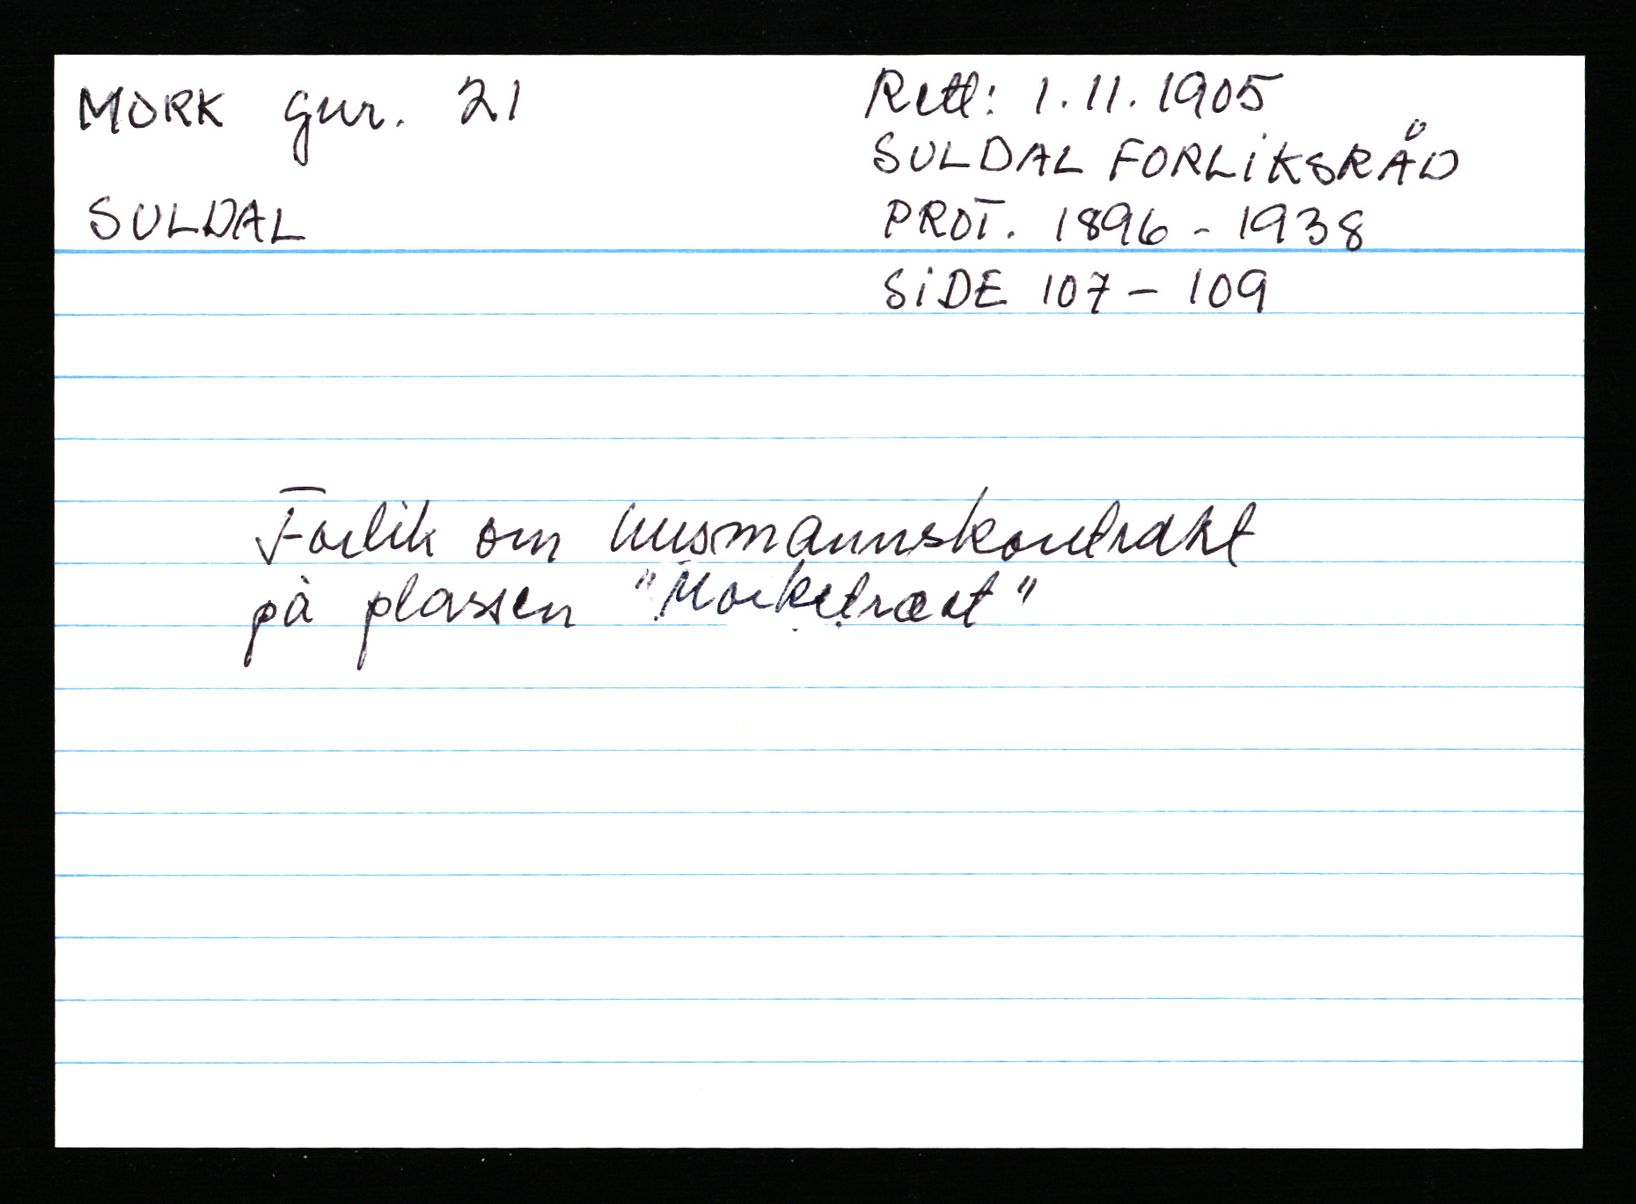 MORK gnr. 21
SULDAL
Rett: 1.11.1905
SULDAL FORLIKSRÅD
PROT. 1896 - 1938
SIDE 107 - 109
Forlik om husmannskontrakt
på plassen "Morketræet"